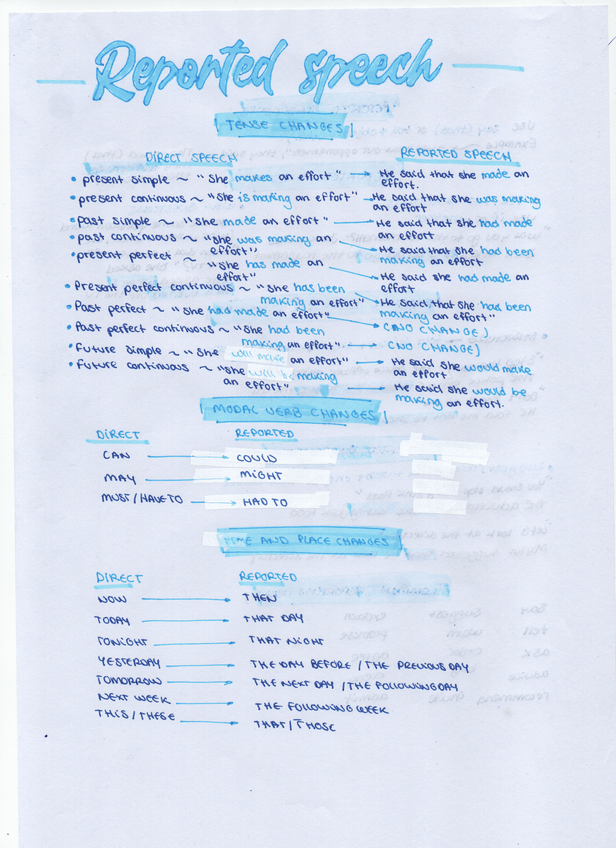 Reported speech
TENSE CHANGES
DIRECT SPEECH REPORTED SPEECH
• present simple ~ "She makes an effort" → He said that she made an
effort.
• present continuous ~ "She is making an effort" → He said that she was making
an effort
• Past simple ~ "She made an effort" → He said that she had made
an effort
• past continuous ~ "She was making an
effort" → He said that she had been
making an effort
• present perfect ~ "She has made an
effort" → He said that she had made an
effort
• Present perfect continuous ~ "She has been
making an effort" → He said that she had been
making an effort"
• Past perfect ~ "She had made an effort" → (NO CHANGE)
• Past perfect continuous ~ "She had been
making an effort". → (NO CHANGE)
• Future simple ~ "She will make an effort" → He said she would make
an effort
• Future continuous ~ "She will be making
an effort" → He said she would be
making an effort.
MODAL VERB CHANGES
DIRECT REPORTED
CAN → COULD
MAY → MIGHT
MUST / HAVE TO → HAD TO
TIME AND PLACE CHANGES
DIRECT REPORTED
NOW → THEN
TODAY → THAT DAY
TONIGHT → THAT NIGHT
YESTERDAY → THE DAY BEFORE / THE PREVIOUS DAY
TOMORROW → THE NEXT DAY / THE FOLLOWING DAY
NEXT WEEK → THE FOLLOWING WEEK
THIS / THESE → THAT / THOSE